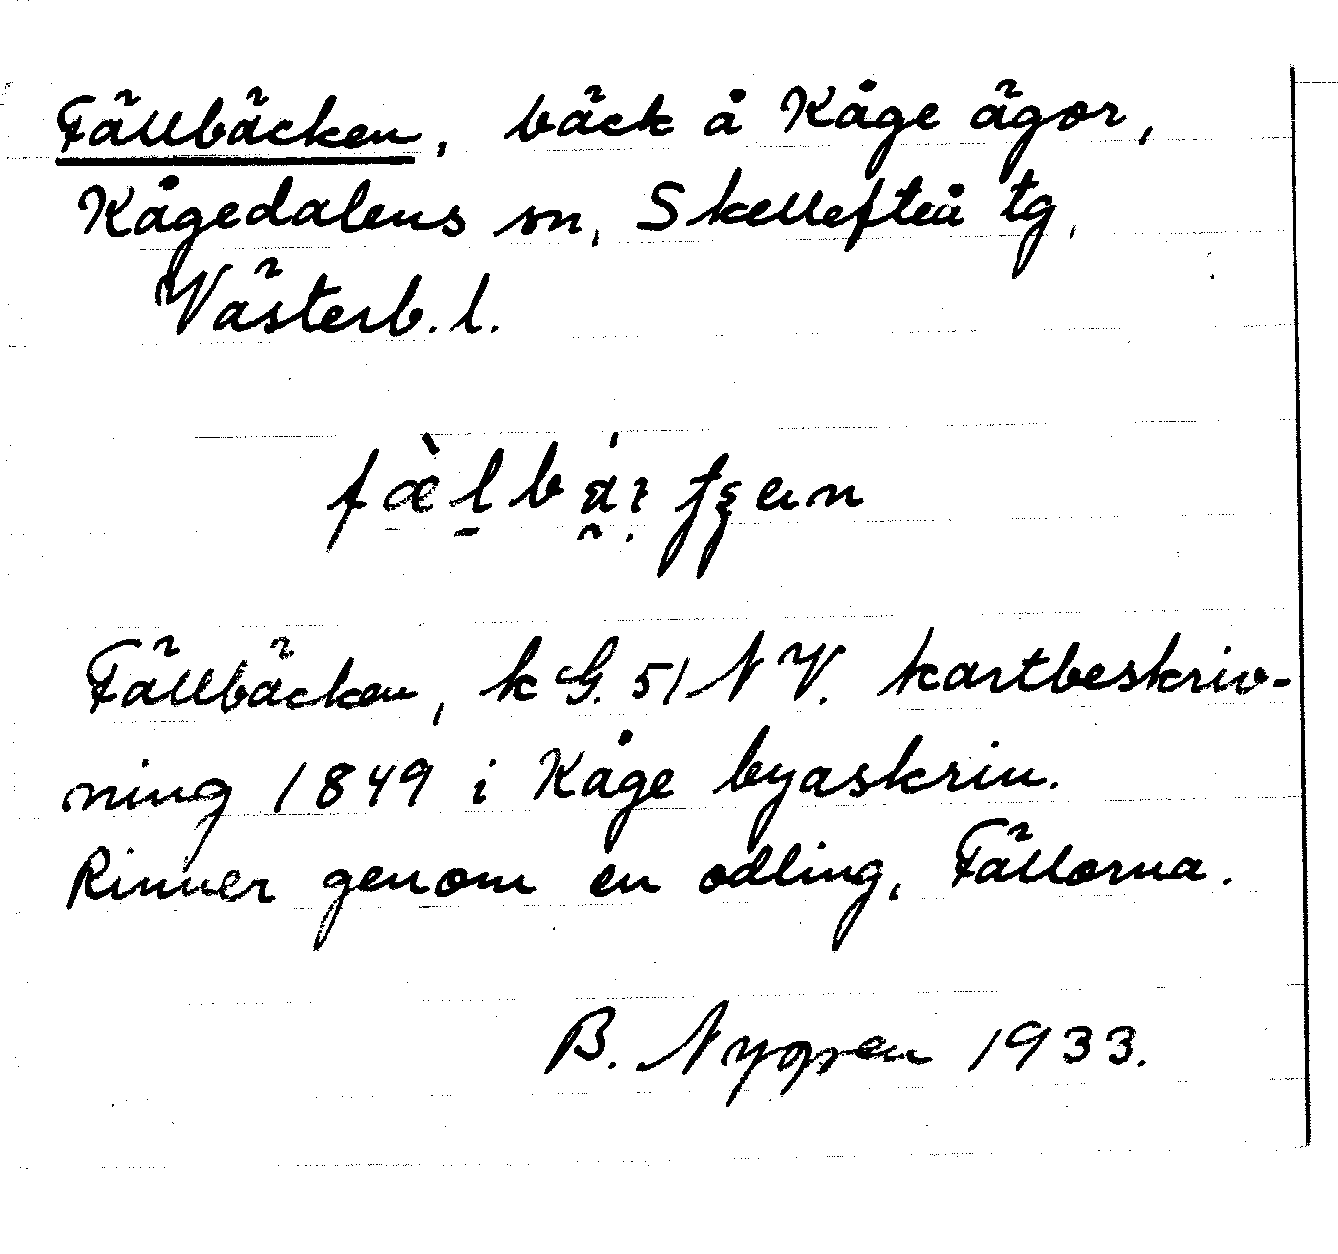 Fällbäcken, bäck å Kåge ägor,
Kågedalens sn, Skellefteå tg,
Västerb. l.
Fällbäcken, kG. 51 NV. kartbeskriv-
ning 1849 i Kåge byaskrin.
Rinner genom en odling, Fällorna.
B. Nygren 1933.